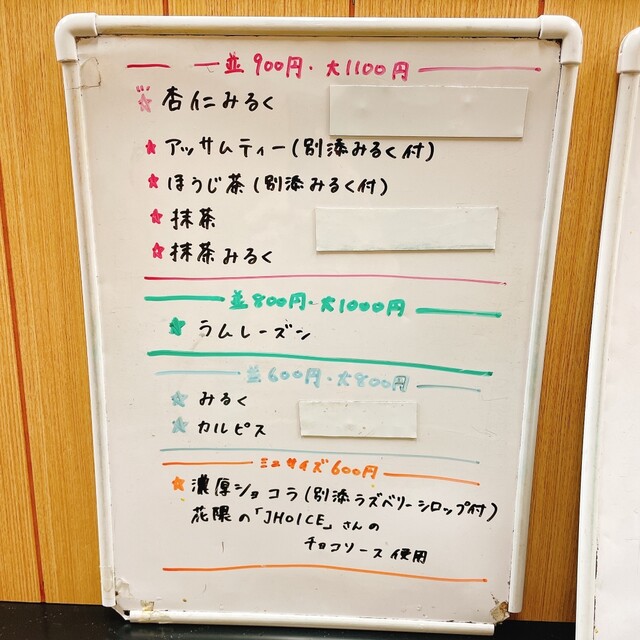 並900円・大1100円
杏仁みるく
アッサムティー(別添みるく付)
ほうじ茶(別添みるく付)
抹茶
抹茶みるく
並800円・大1000円
ラムレーズン
並600円・大800円
みるく
カルピス
ミニサイズ600円
濃厚ショコラ(別添ラズベリーシロップ付)
花隈の「JHOICE」さんの
チョコソース使用